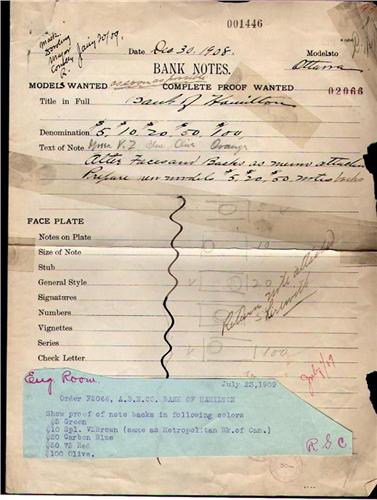 001446
Made
Jany 20/09.
Date Dec 30, 1908. Models to
Ottawa
BANK NOTES.
MODELS WANTED as soon as possible COMPLETE PROOF WANTED
02066
Title in Full Bank of Hamilton
Denomination $5, 10, 20, 50, 100
Text of Note Olive Orange
Alter Faces and Backs as memo attached
Prepare new models $5, 20, 50 notes backs
FACE PLATE
Notes on Plate
Size of Note 10
Stub
General Style V 20
Signatures
Numbers
Vignettes
Series
Check Letter V 100
Return note attached
herewith
July/09
Eng Room.
July 23, 1909
Order F2066, A.B.N.CO. BANK OF HAMILTON
Show proof of note backs in following colors
$5 Green
$10 Spl. V.Brown (same as Metropolitan Bk.of Can.)
$20 Carbon Blue
$50 75 Red
$100 Olive.
R.G.C